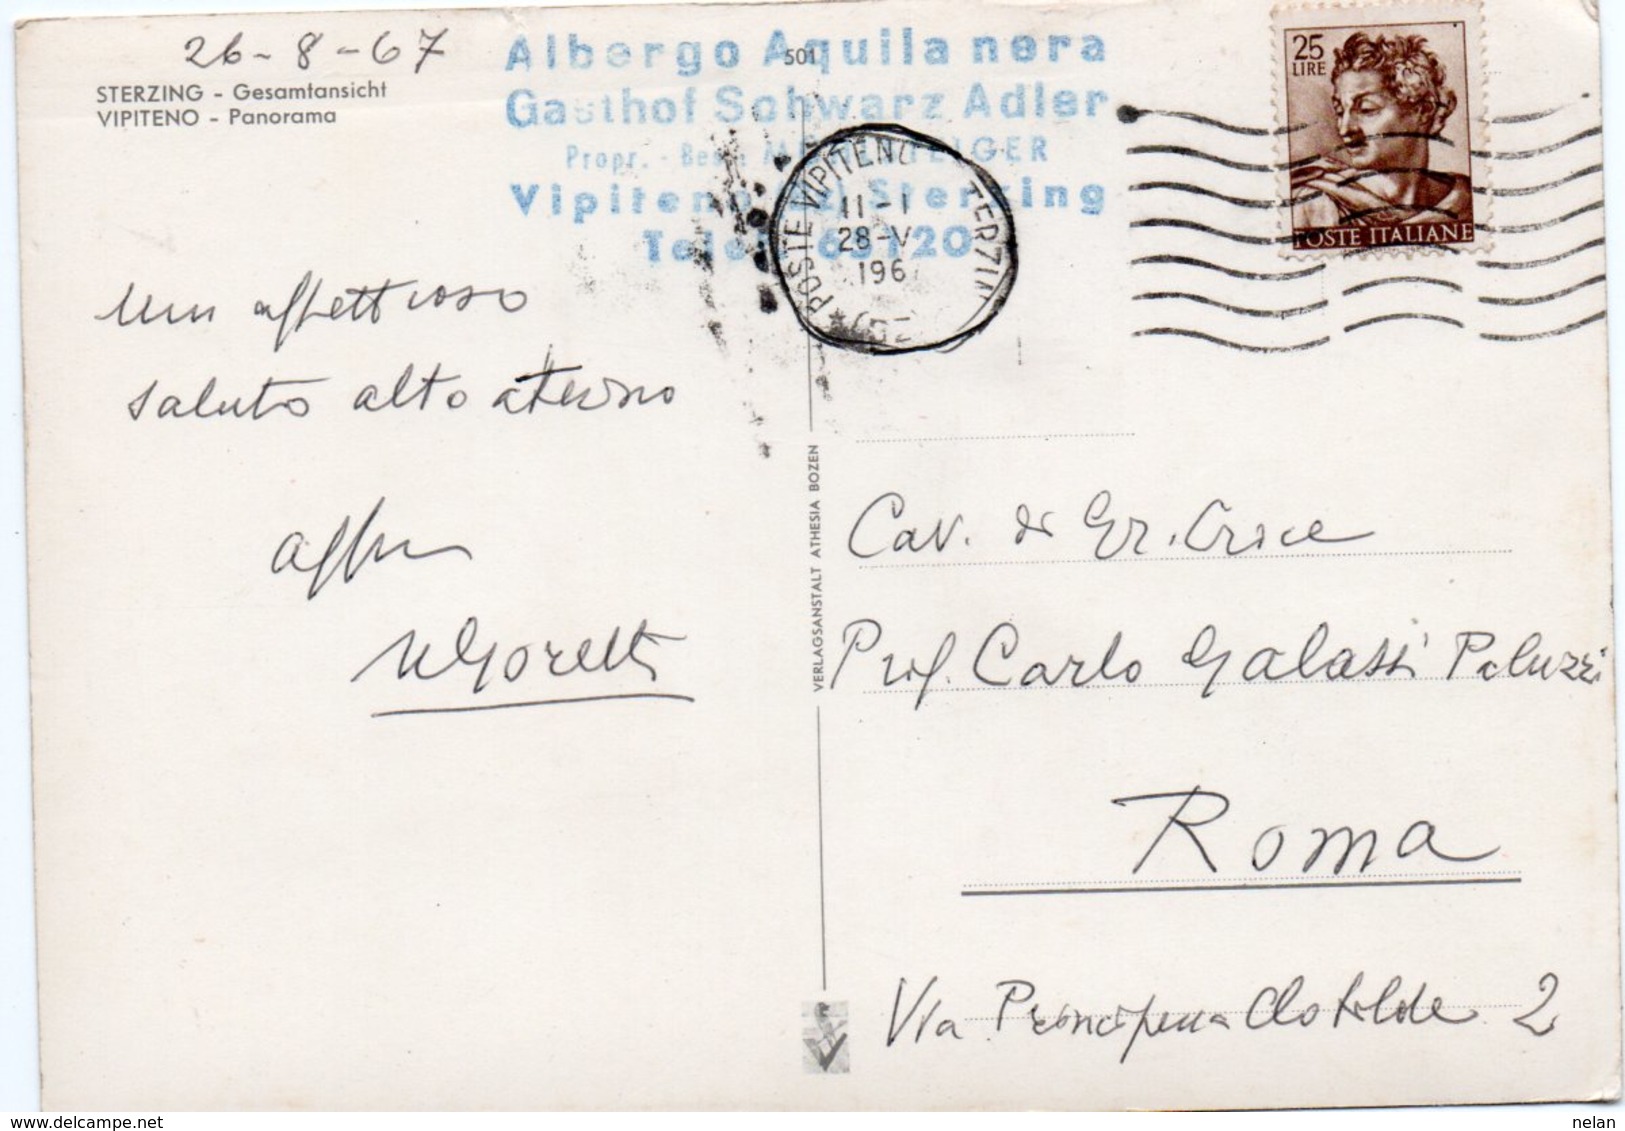 26-8-67
STERZING - Gesamtansicht
VIPITENO - Panorama
501
Albergo Aquila nera
Gasthof Schwarz Adler
Propr. -
Vipiteno Sterzing
25
LIRE
POSTE ITALIANE
POSTE VIPITENO
28-V
196
Un affettuoso
saluto alto atesino
Moretti
VERLAGSANSTALT ATHESIA BOZEN
Cav. di Gr. Croce
Prof. Carlo Galassi Paluzzi
Roma
Via Principessa Clotilde 2
nelan